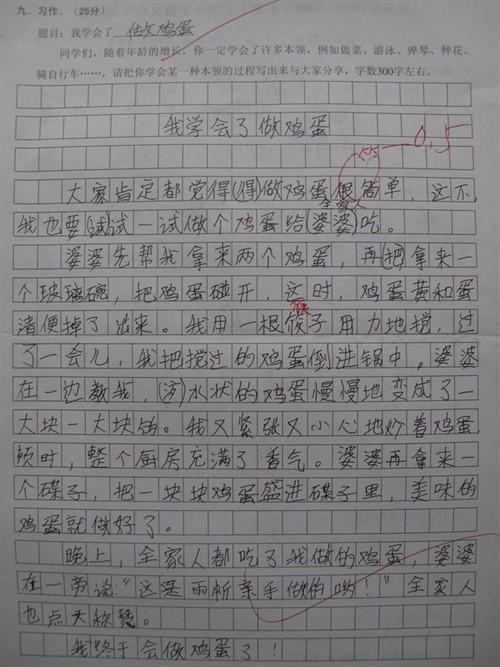 九、习作。（25分）
题目：我学会了 做鸡蛋
同学们，随着年龄的增长，你一定学会了许多本领，例如做菜、游泳、弹琴、种花、
骑自行车……，请把你学会某一种本领的过程写出来与大家分享，字数300字左右。
我学会了做鸡蛋
0.5
大家肯定都觉得(得)做鸡蛋很简单，这不，
全家人
我也要(试)试一试做个鸡蛋给婆婆吃。
婆婆先帮我拿来两个鸡蛋，再(把)拿来一
个玻璃碗，把鸡蛋碰开，这时，鸡蛋黄和蛋
清便掉了出来。我用一根筷子用力地搅，过
了一会儿，我把搅过的鸡蛋倒进锅中，婆婆
在一边教我，水状的鸡蛋慢慢地变成了一
大块一大块的。我又紧张又小心地炒着鸡蛋
顿时，整个厨房充满了香气。婆婆再拿来一
个碟子，把一块块鸡蛋盛进碟子里，美味的
鸡蛋就做好了。
晚上，全家人都吃了我做的鸡蛋，婆婆
在一旁说：“这是雨昕亲手做的哟！”全家人
也点大称赞。
我终于会做鸡蛋了！